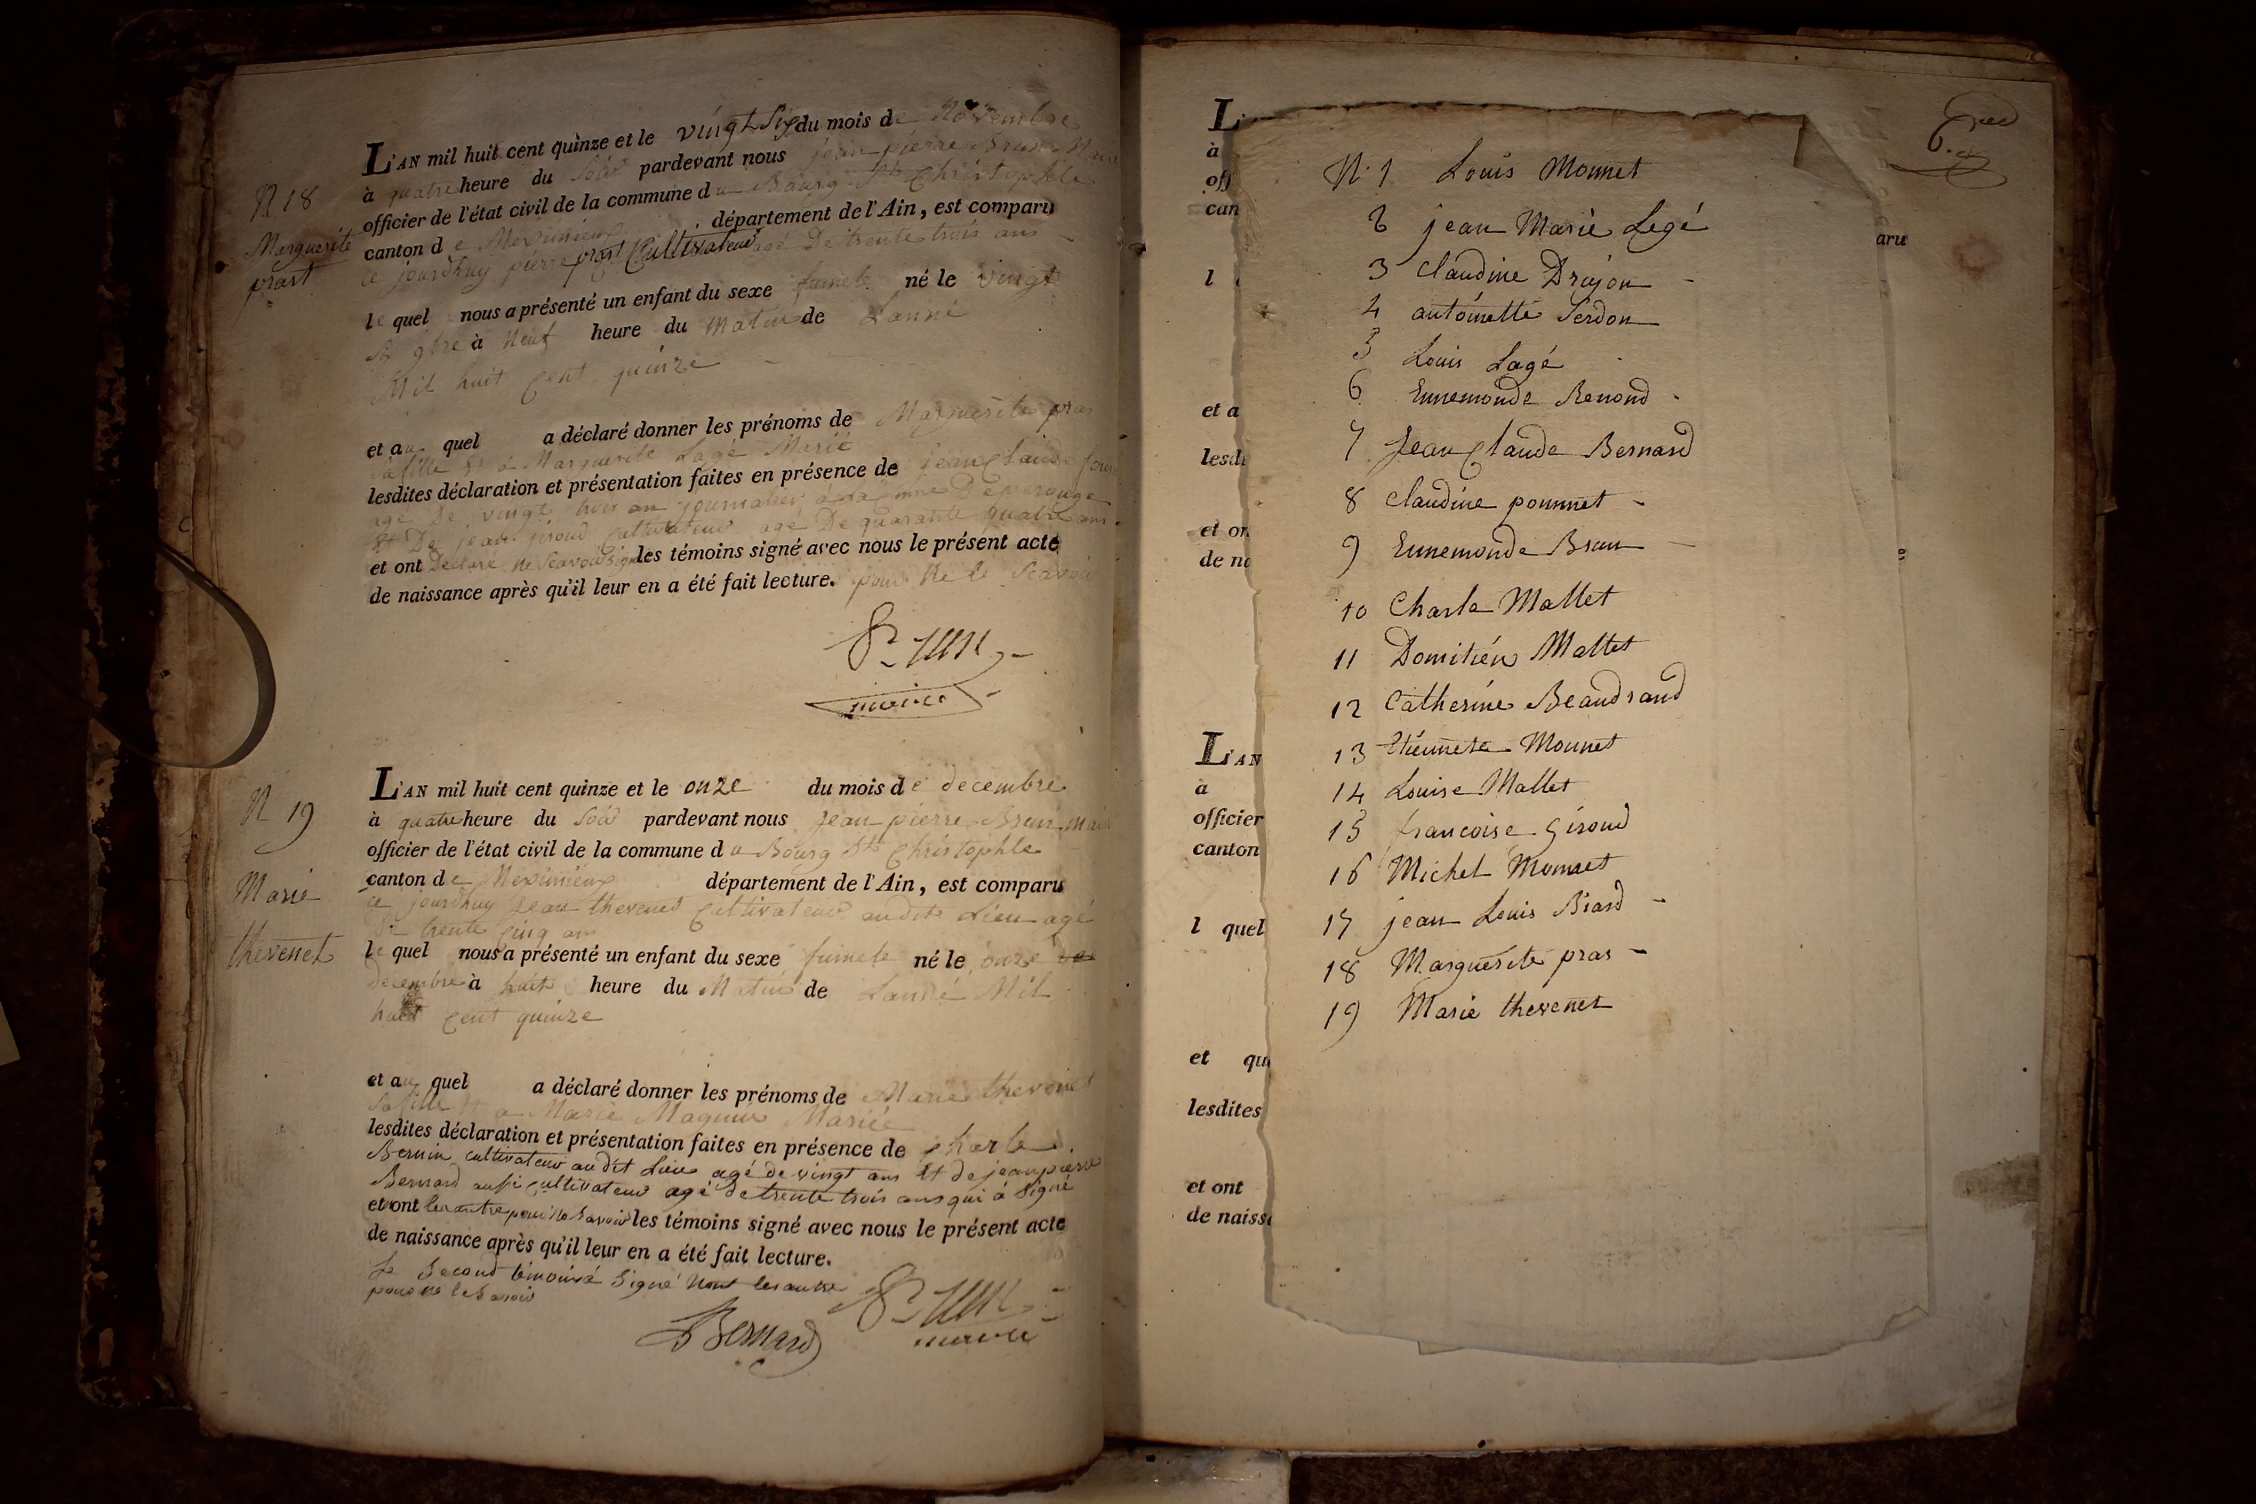 N 18
Marguerite
prast
L'AN mil huit cent quinze et le vingt Six du mois de Novembre
à quatre heure du Soir pardevant nous jean pierre Brun Maire
officier de l'état civil de la commune du Bourg St Christophle
canton de Meximieux département de l'Ain, est comparu
ce jourdhuy pierre prast Cultivateur agé De trente trois ans
le quel nous a présenté un enfant du sexe fumele né le vingt
Six 9bre à Neuf heure du Matin de Lanné
Mil huit Cent quinze
et au quel a déclaré donner les prénoms de Marguerite pras
Sa fille Et a Marguerite Lagé Marié
lesdites déclaration et présentation faites en présence de jean Claude
agé De vingt huit an journalier
Et De jean giroud Cultivateur agé De quarante quatre ans
et ont Declaré Ne Scavoir Signé les témoins signé avec nous le présent acte
de naissance après qu'il leur en a été fait lecture. pour Ne le Scavoir
Brun
maire
N 19
Marie
thevenet
L'AN mil huit cent quinze et le onze du mois de decembre
à quatre heure du Soir pardevant nous jean pierre Brun maire
officier de l'état civil de la commune du Bourg St Christophle
canton de Meximieux département de l'Ain, est comparu
ce jourdhuy Jean thevenet Cultivateur audit Lieu agé
De trente Cinq ans
le quel nous a présenté un enfant du sexe fumele né le onze
Decembre à huit heure du Matin de Lanné Mil
huit Cent quinze
et au quel a déclaré donner les prénoms de Marie thevenet
Sa fille Et a Marie Marié
lesdites déclaration et présentation faites en présence de Charle
Bernin cultivateur audit Lieu agé de vingt ans Et de jean pierre
Bernard aussi Cultivateur agé de trente trois ans qui a Signé
et ont les autre pour Ne Savoir les témoins signé avec nous le présent acte
de naissance après qu'il leur en a été fait lecture.
Le Second témoin a Signé Nont les autre
pour ne le Savoir
Bernard
Brun
maire
L'
à
off
can
aru
l
et a
lesdi
et on
de na
e
L'AN
à
officier
canton
l quel
et qu
lesdites
et ont
de naiss
N. 1 Louis Monnet
2 jean Marie Legé
3 Claudine Drujon
4 antoinette Serdon
5 Louis Lagé
6 Ennemonde Renond
7 Jean Claude Bernard
8 Claudine pommet
9 Ennemonde Brun
10 Charle Mallet
11 Domitien Mallet
12 Catherine Beaudrand
13 Etiennete Monnet
14 Louise Mallet
15 francoise Giroud
16 Michel Monnet
17 jean Louis Biard
18 Marguerite pras
19 Marie thevenet